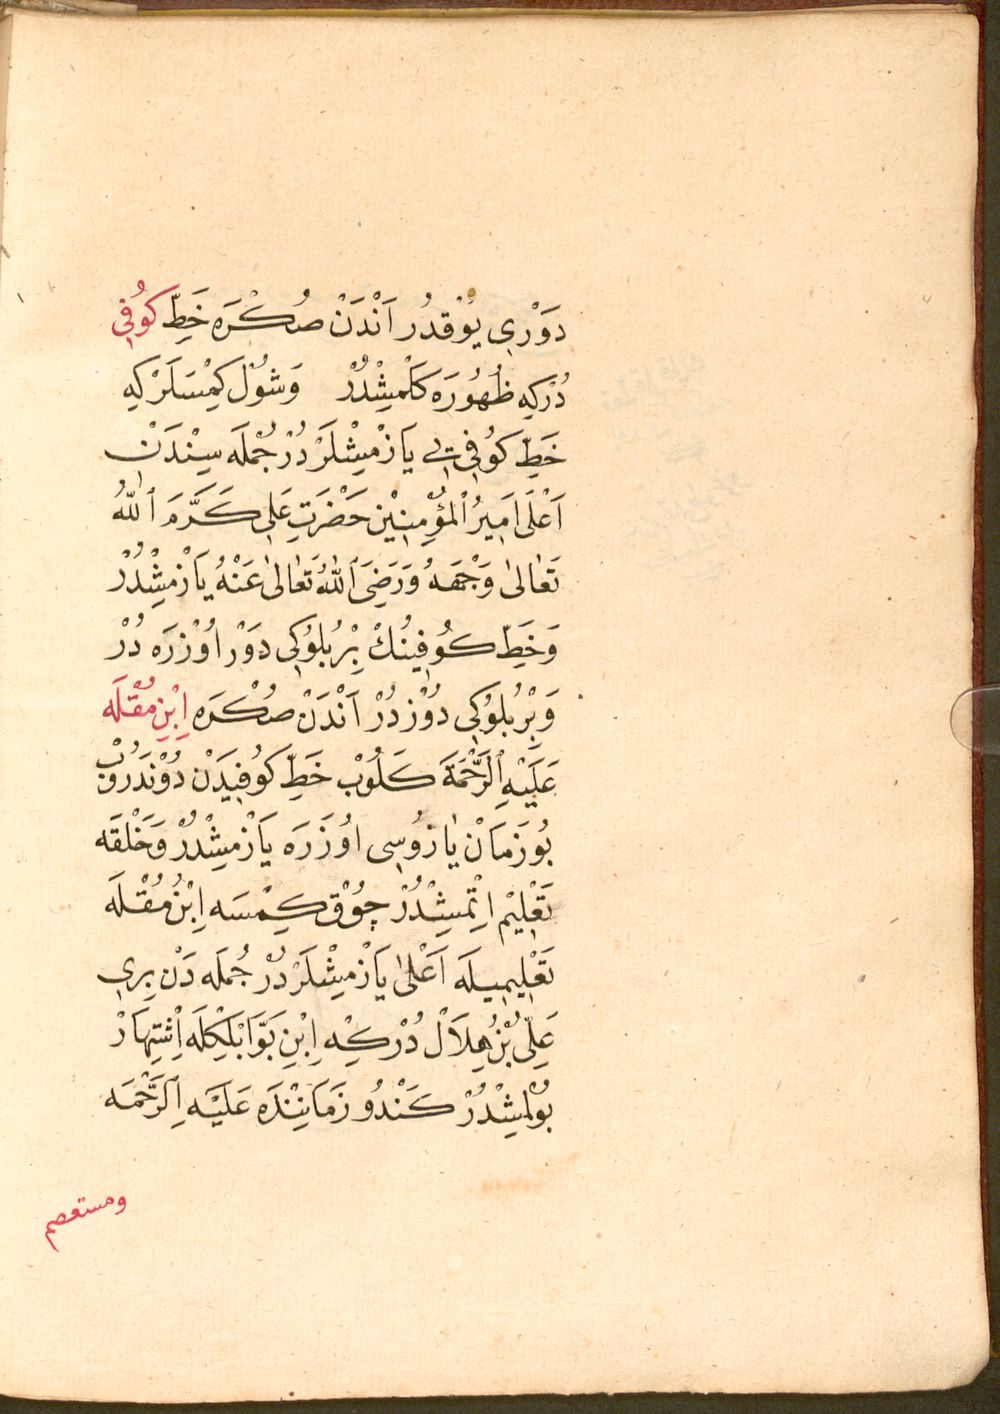 دَوْرِي يُوْقدُر اَنْدَنْ صُكْرَه خَطِّ كُوفِي
دُرْكِه ظُهُورَه كَلْمِشْدُرْ وَشُوْل كِمْسَلَرْكِه
خَطِّ كُوفِي يَازْمِشْلَرْدُرْ جُمْلَه سِنْدَنْ
اَعْلَى اَمِيرُ الْمُؤْمِنِيْن حَضْرَتِ عَلِي كَرَّمَ ٱللّٰهُ
تَعَالٰى وَجْهَهُ وَرَضِيَ ٱللّٰهُ تَعَالٰى عَنْهُ يَازْمِشْدُرْ
وَخَطِّ كُوفِينُكْ بِرْ بُلُوكِي دَوْر اُوْزْرَه دُرْ
وَبِرْ بُلُوكِي دُوْزدُرْ اَنْدَنْ صُكْرَه اِبْنِ مُقْلَه
عَلَيْهِ ٱلرَّحْمَةَ كَلُوبْ خَطِّ كُوفِيدَنْ دُوْنْدَرُوبْ
بُو زَمَانْ يَازُوسِي اُوزَرَه يَازْمِشْدُرْ وَخَلْقَه
تَعْلِيْم اِتْمِشِدُرْ چُوْق كِمْسَه اِبْنُ مُقْلَه
تَعْلِيمِيلَه اَعْلٰى يَازْمِشْلَرْدُرْ جُمْلَه دَنْ بِرِي
عَلِيّ بْنُ هِلَالْ دُرْكِه اِبْنِ بَوَّابْلِكِلَه اِشْتِهَارْ
بُوْلْمِشْدُرْ كَنْدُو زَمَانِنْدَه عَلَيْهِ ٱلرَّحْمَه
ومستعصم